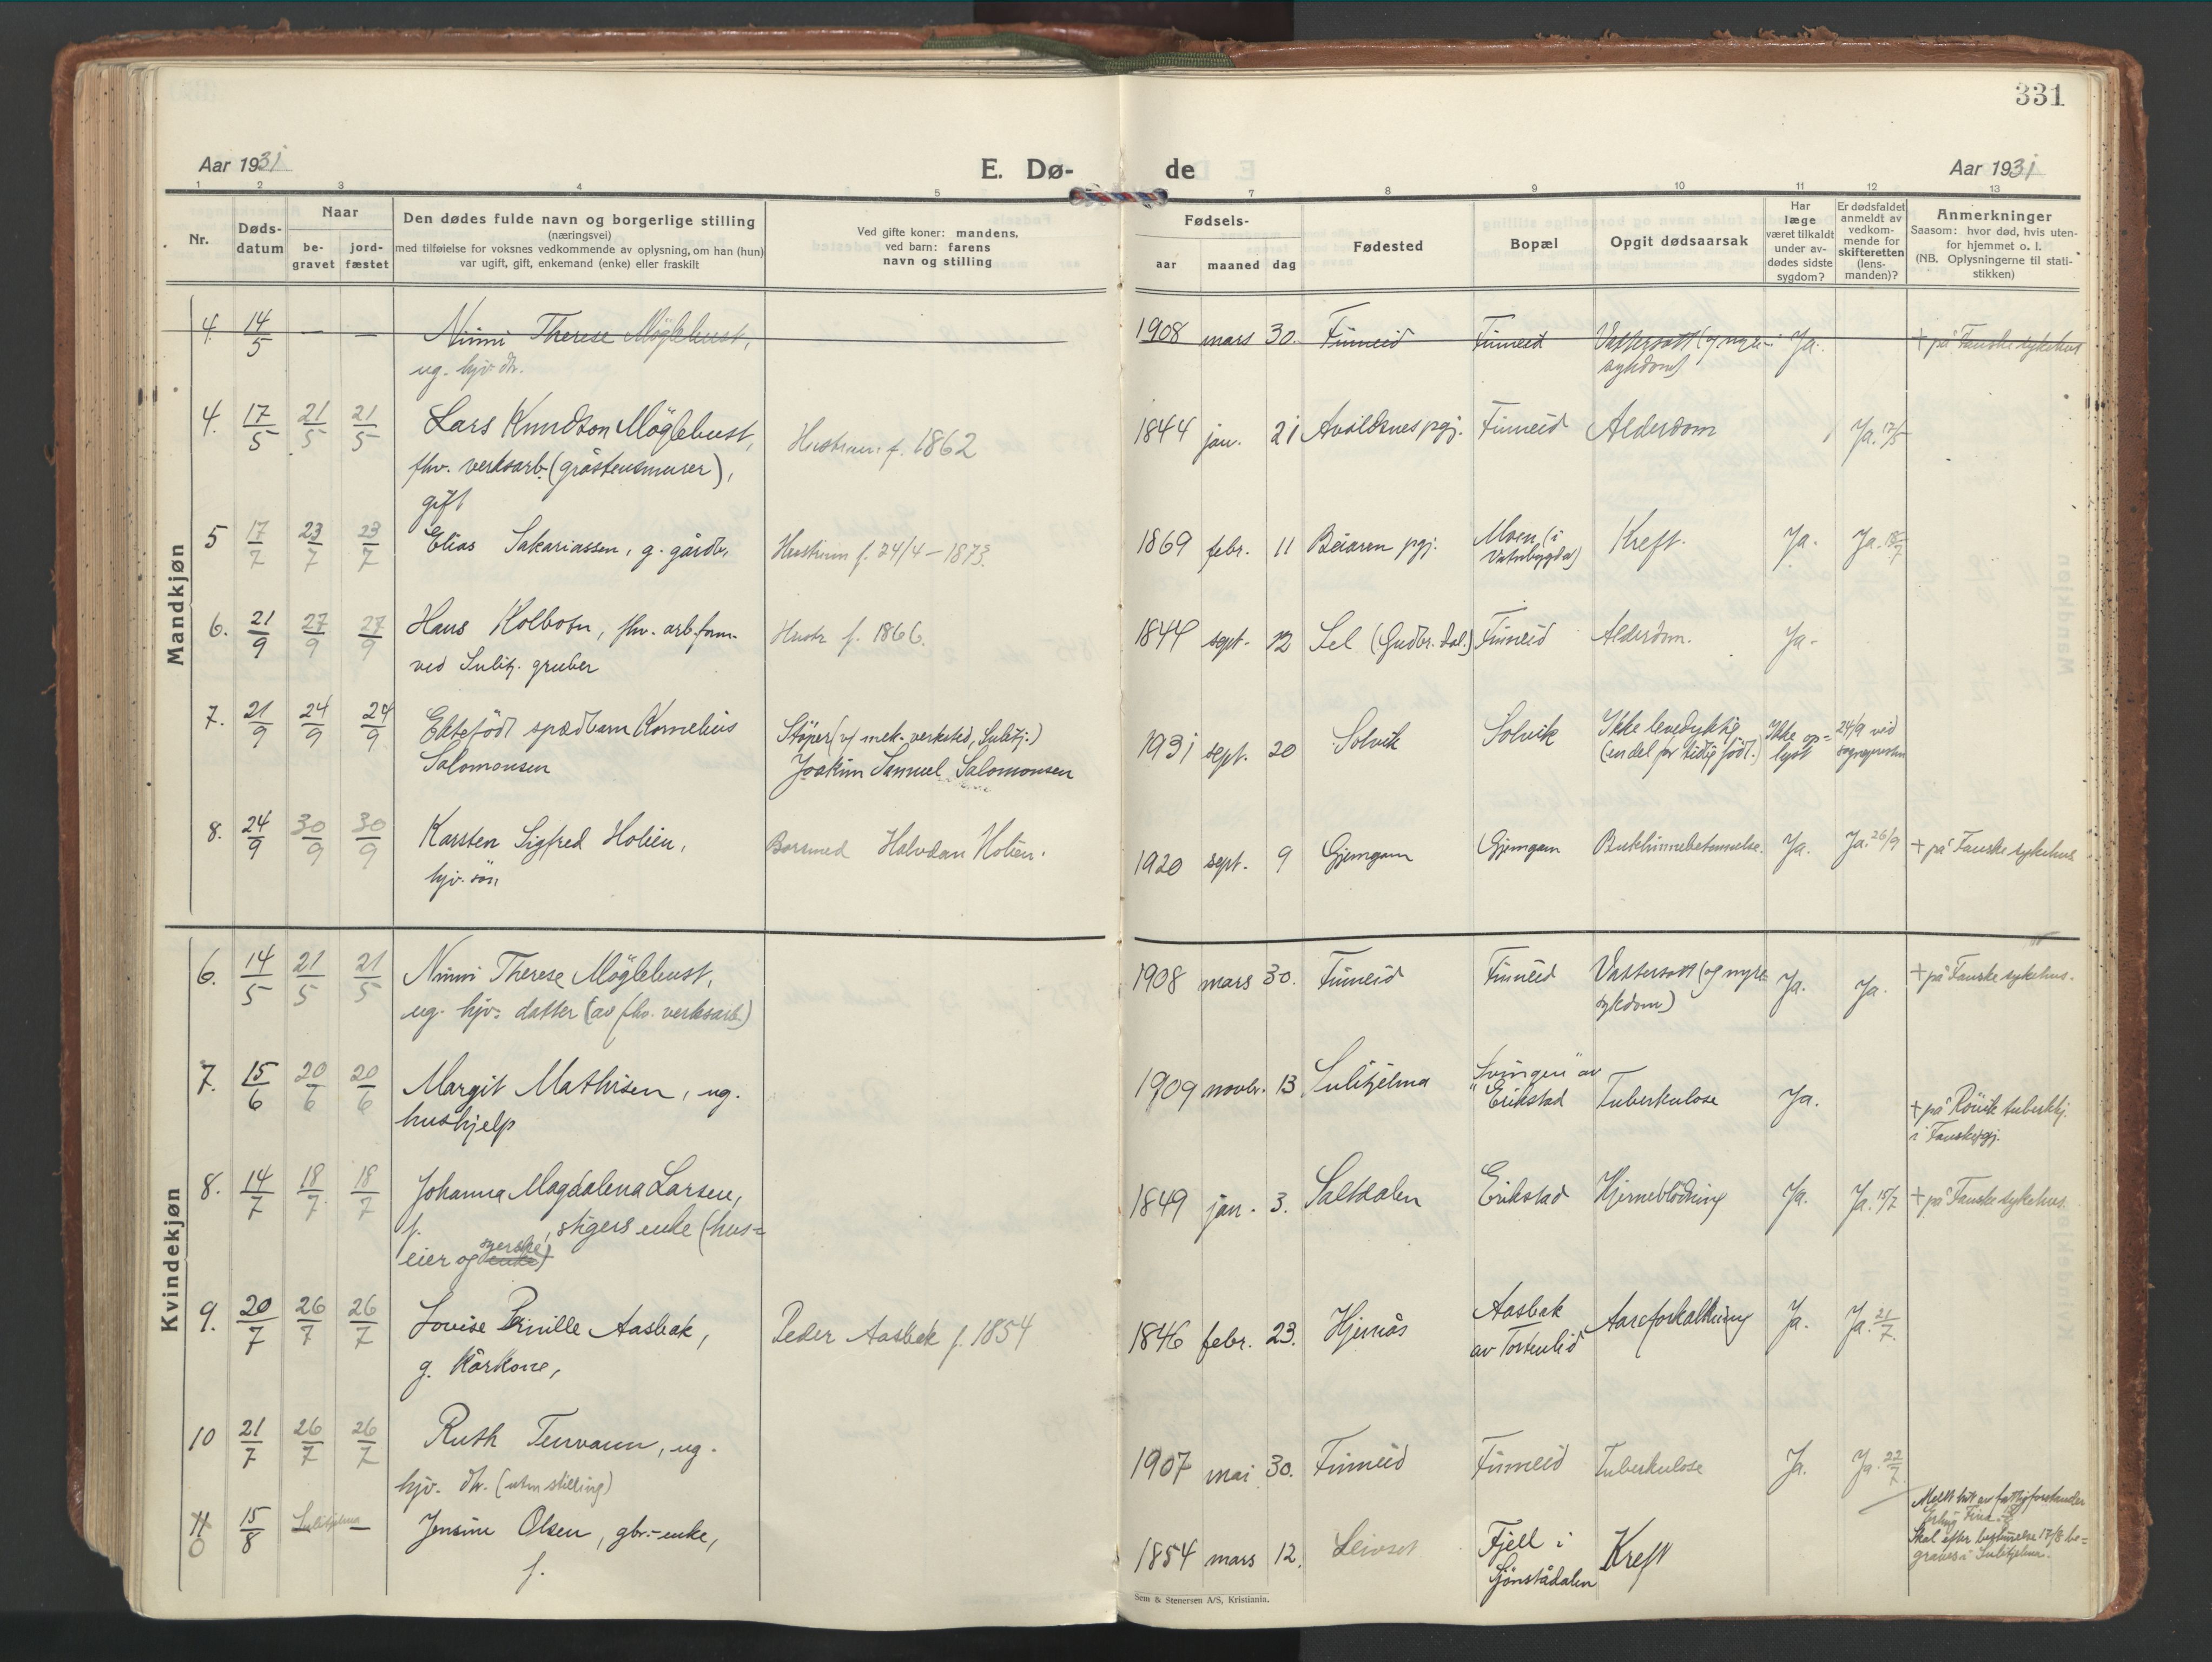 331
Aar 1931 E. Dø- de Aar 1931
1 2 3 4 5 7 8 9 10 11 12 13
Nr. Døds-datum Naar be-gravet jord-fæstet Den dødes fulde navn og borgerlige stilling (næringsvei) med tilføielse for voksnes vedkommende av oplysning, om han (hun) var ugift, gift, enkemand (enke) eller fraskilt Ved gifte koner: mandens, ved barn: farens navn og stilling Fødsels- aar maaned dag Fødested Bopæl Opgit dødsaarsak Har læge været tilkaldt under av-dødes sidste sygdom? Er dødsfaldet anmeldt av vedkom-mende for skifteretten (lens-manden)? Anmerkninger Saasom: hvor død, hvis uten-for hjemmet o. l. (NB. Oplysningerne til stati-stikken)
Mandkjøn
4. 14/5 — — Nimmi Therese Möglebust, 1908 mars 30. Finneid Finneid Vattersott (og nyre- Ja. + på Fauske sykehus
ug. hjv. dtr. sykdom)
4. 17/5 21/5 21/5 Lars Knudson Möglebust, Hustrun f. 1862 1844 jan. 21 Avaldsnes pgj. Finneid Alderdom / Ja. 17/5
fhv. verksarb. (gråstensmurer),
gift
5 17/7 23/7 23/7 Elias Sakariassen, g. gårdb. Hustruen f. 24/4 - 1873. 1869 febr. 11 Beiaren pgj. Moen (i Vatnbygda) Kreft. Ja. Ja. 18/7
6. 21/9 27/9 27/9 Hans Kolbotn, fhv. arb.form. Hustr f. 1866. 1844 sept. 12 Sel (Gudbr. dal.) Finneid Alderdom. Ja.
ved Sulitj. gruber
7. 21/9 24/9 24/9 Ektefödt spædbarn Kornelius Støper (v/ mek. verksted, Sulitj.) 1931 sept. 20 Solvik Solvik Ikke levedyktig Ikke op- 24/9 ved
Salomonsen Joakim Samuel Salomonsen (en del for tidlig födt.) lyst
8. 24/9 30/9 30/9 Karsten Sigfred Holien, Halvdan Holien. 1920 sept. 9 Gjemgam Gjemgam Bukhinnebetennelse. Ja. Ja. 26/9 + på Fauske sykehus
hjv. sön
Kvindekjøn
6. 14/5 21/5 21/5 Nimmi Therese Möglebust, 1908 mars 30. Finneid Finneid Vattersott (og nyre- Ja. Ja. + på Fauske sykehus.
ug. hjv. datter (av fhv. verksarb.) sykdom)
7. 15/6 20/6 20/6 Margit Mathisen, ug. 1909 novbr. 13. Sulitjelma "Svingen" av Erikstad Tuberkulose Ja. + på Rövik tuberkhj.
hushjelp i Fauske pgj.
8. 14/7 18/7 18/7 Johanna Magdalena Larsen, 1849 jan. 3. Saltdalen Erikstad Hjerneblödning Ja. Ja. 15/7 + på Fauske sykehus.
f. , stigers enke (hus=
eier og syerske)
9. 20/7 26/7 26/7 Lovise Pernille Aasbak, Peder Aasbak f. 1854 1846 febr. 23. Hjemås Aasbak Aareforkalkning Ja. Ja. 21/7
g. kårkone, av Tortenlid
10 21/7 26/7 26/7 Ruth Tervann, ug. 1907 mai 30. Finneid Finneid Tuberkulose Ja. Ja. 22/7
hjv. dtr. (uten stilling)
11 0 15/8 Sulitjelma — Jensine Olsen, gbr.-enke, 1854 mars 12. Leivset Fjell i Kreft Meldt hit av fattigforstander
f. Sjönstådalen Skal efter bestemmelse 17/8 be=
graves i Sulitjelma.
Sem & Stenersen A/S, Kristiania.